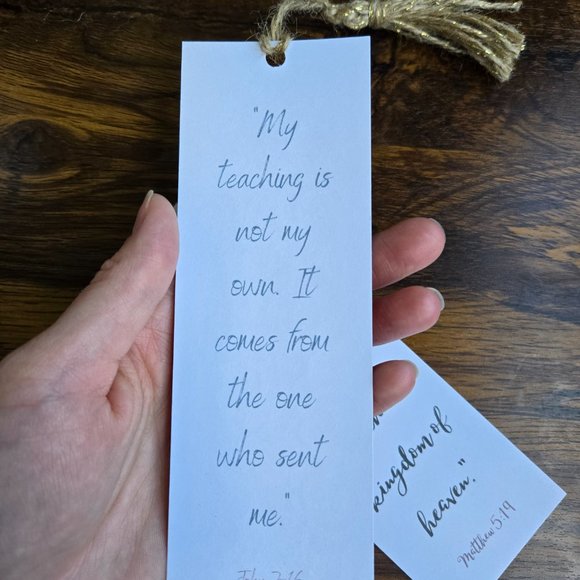 "My
teaching is
not my
own. It
comes from
the one
who sent
me."
kingdom of
heaven."
Matthew 5:19